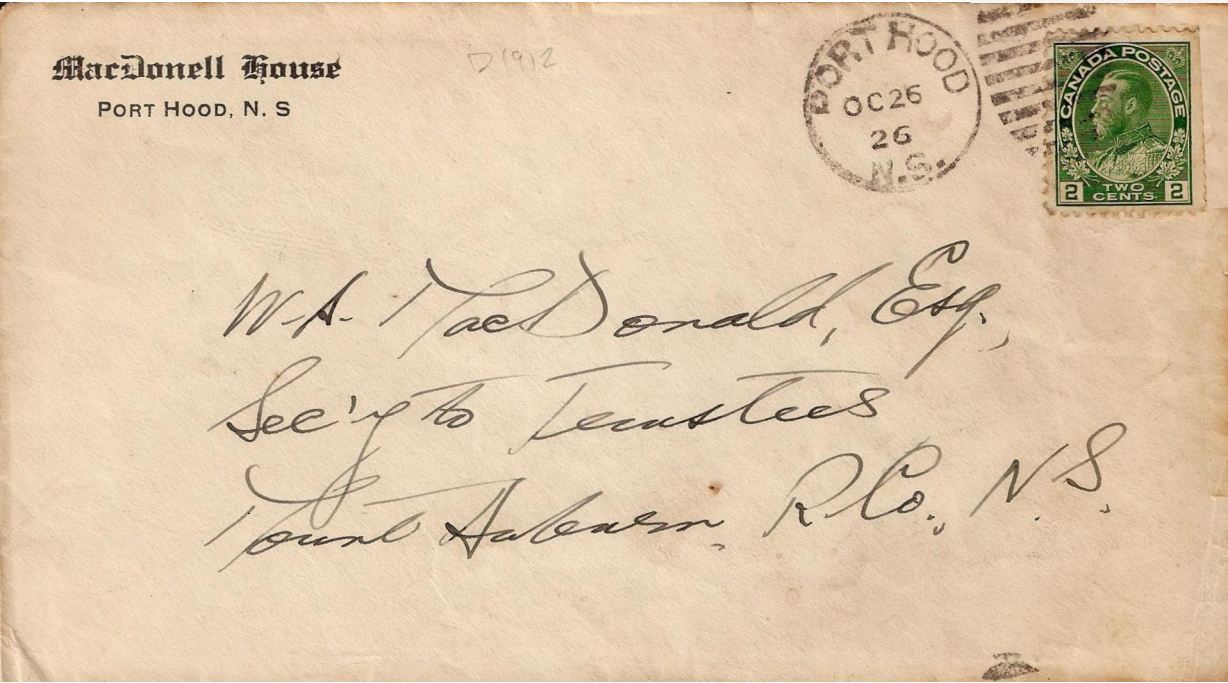 MacDonell House
PORT HOOD, N. S
D1912
PORT HOOD
OC 26
26
N.S.
CANADA POSTAGE
2 TWO CENTS 2
W. A. MacDonald, Esq.,
Sec'y to Trustees
Mount Auburn, R. Co., N.S.